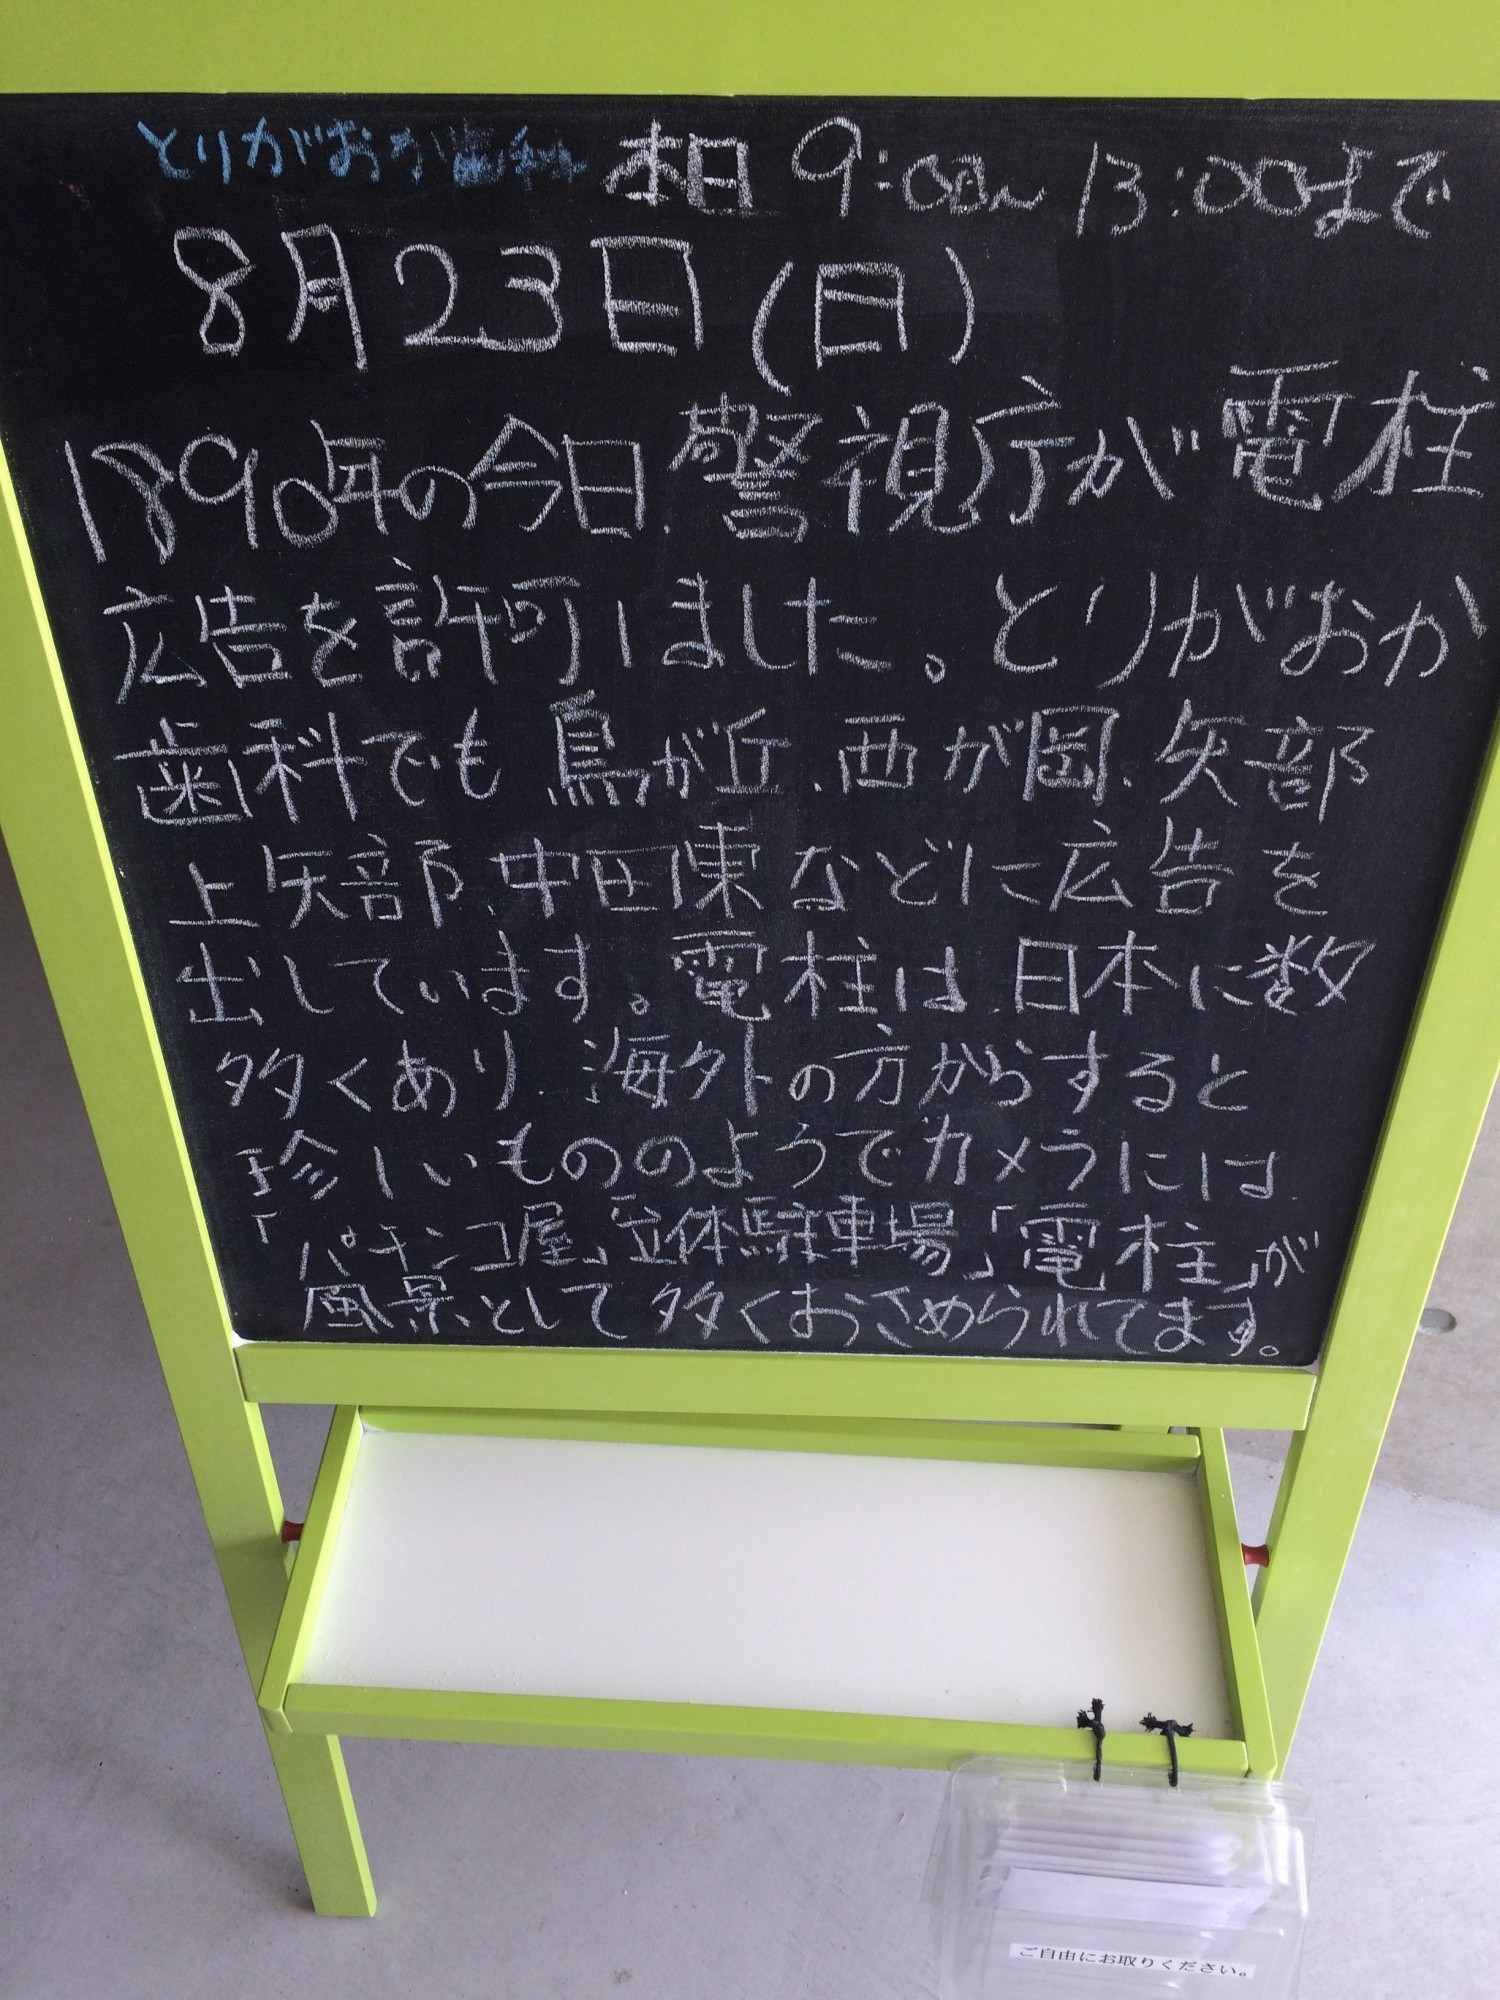 とりがおか歯科 本日 9:00〜13:00まで
8月23日(日)
1890年の今日、警視庁が電柱
広告を許可しました。とりがおか
歯科でも鳥が丘、西が岡、矢部
上矢部、中田東などに広告を
出しています。電柱は、日本に数
多くあり、海外の方からすると
珍しいもののようでカメラには
「パチンコ屋」「立体駐車場」「電柱」が
風景として多くおさめられてます。
ご自由にお取りください。